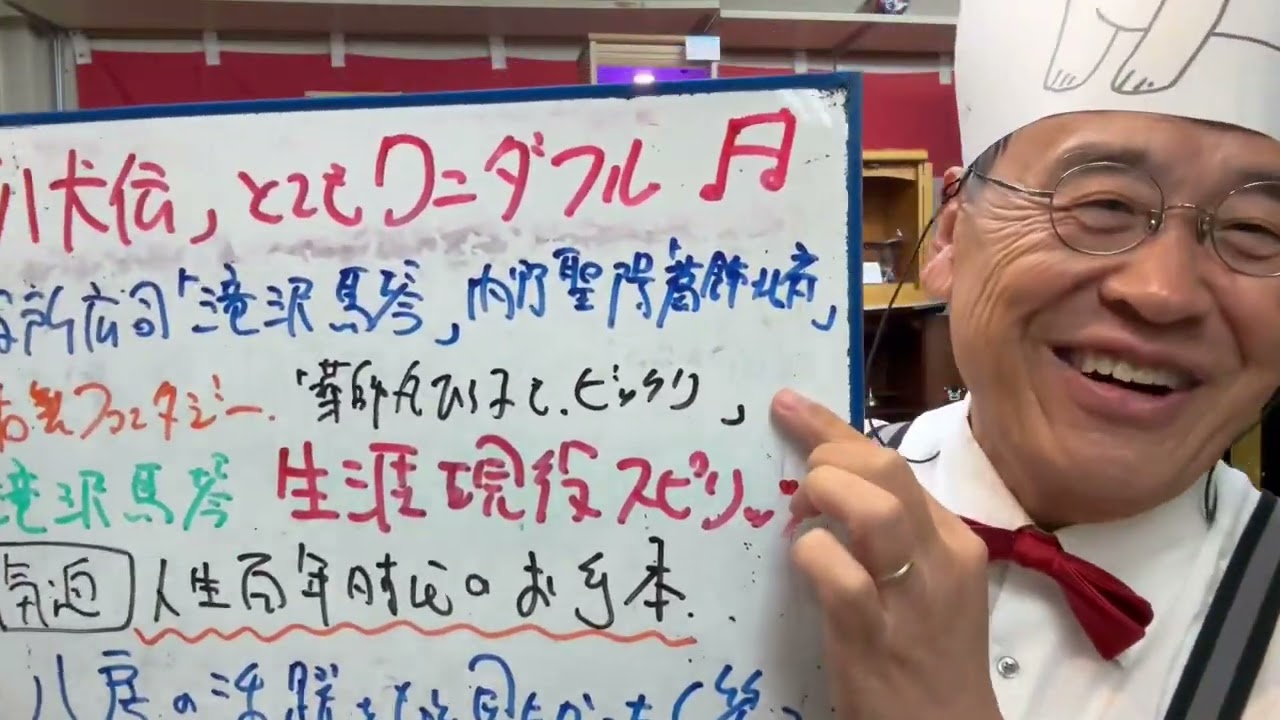 八犬伝」とてもワンダフル
役所広司「滝沢馬琴」内野聖陽葛飾北斎」
お気ファンタジー.「薬師丸ひろ子.ビックリ」
滝沢馬琴 生涯現役スピリッ
人生百年時代のお手本.
八房の活躍